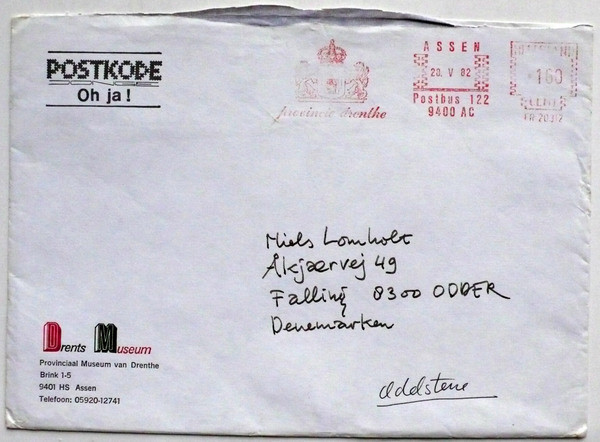 POSTKODE
Oh ja!
provincie drenthe
ASSEN
28. V 82
Postbus 122
9400 AC
160
CENT
Niels Lomholt
Åkjærvej 49
Falling 8300 ODDER
Denemarken
Drents Museum
Provinciaal Museum van Drenthe
Brink 1-5
9401 HS Assen
Telefoon: 05920-12741